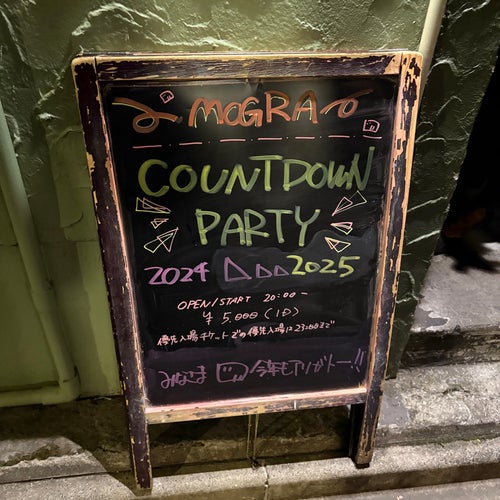 MOGRA
COUNTDOWN
PARTY
2024 ▷▷▷ 2025
OPEN/START 20:00~
¥5,000 (1D)
優先入場チケットでの優先入場は23:00まで
みなさま 今年もアリガトー!!